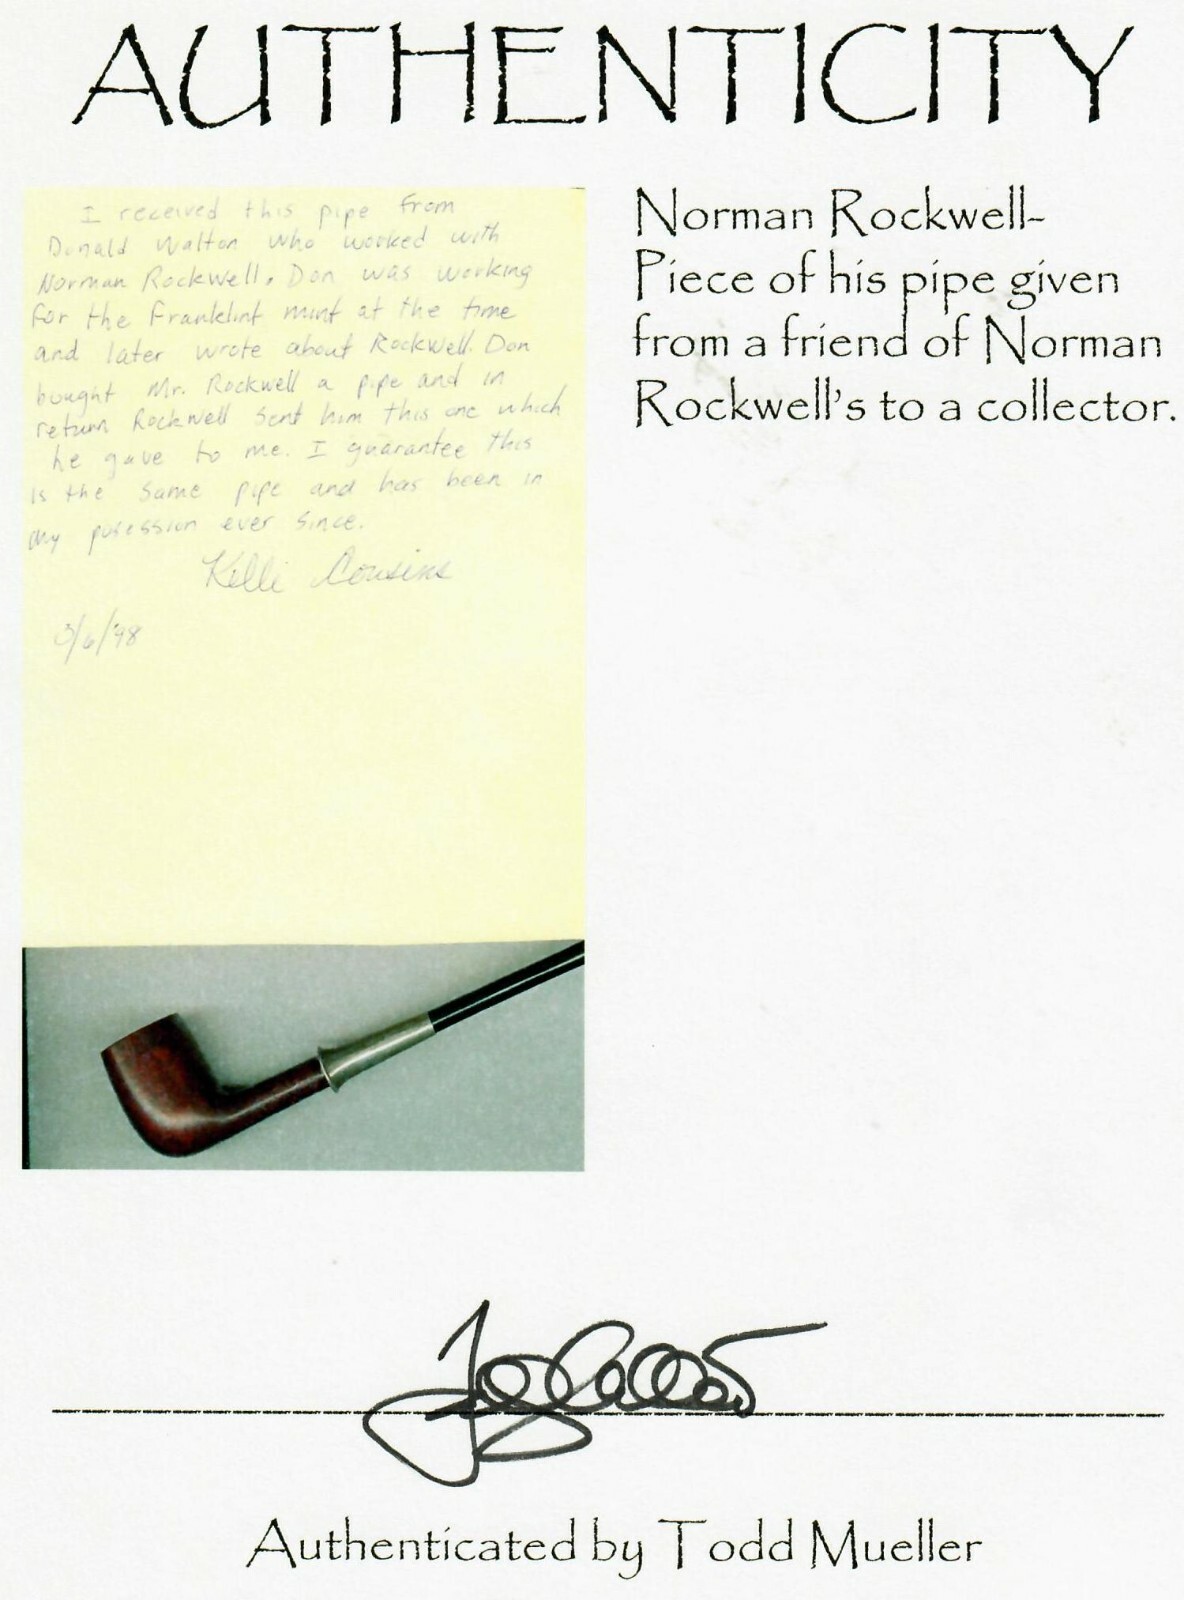 AUTHENTICITY
I received this pipe from
Donald Walton who worked with
Norman Rockwell. Don was working
for the Franklint mint at the time
and later wrote about Rockwell. Don
bought Mr. Rockwell a pipe and in
return Rockwell sent him this one which
he gave to me. I guarantee this
is the same pipe and has been in
my posession ever since.
Kelli Cousins
3/6/98
Norman Rockwell-
Piece of his pipe given
from a friend of Norman
Rockwell's to a collector.
Authenticated by Todd Mueller